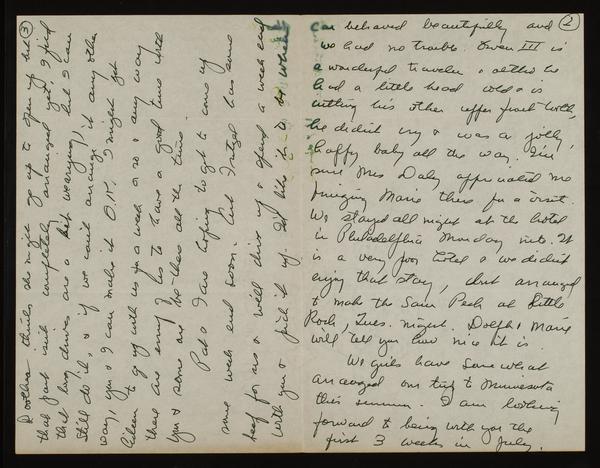 2
car behaved beautifully and
we had no trouble. Owen III is
a wonderful traveler & altho he
had a little head cold & is
cutting his other upper front tooth,
he didn't cry & was a jolly,
happy baby all the way. I'm
sure Mrs Daly appreciated me
bringing Marie there for a visit.
We stayed all night at the hotel
in Philadelphia Monday nite. It
is a very poor hotel & we didn't
enjoy that stay, but arranged
to make the Sam Peck at Little
Rock, Tues. night. Dolph & Marie
will tell you how nice it is.
We girls have somewhat
arranged our trip to Minnesota
this summer. I am looking
forward to being with you the
first 3 weeks in July.
3
thinks she might go up to open up but
that just isn't completely arranged yet, I find
that long drives are a bit wearying, but I can
still do it, & if we can't arrange it any other
way, you & I can make it O.K. I might get
Eileen to go up with us for a week or so & any way
there are enough of us to have a good time with
you & some one be there all the time.
Pat & I are hoping to get to come up
some week end soon. Art Pretzel has some
beef for us & we'll drive up & spend a week end
with you & pick it up. I'd like it to be when